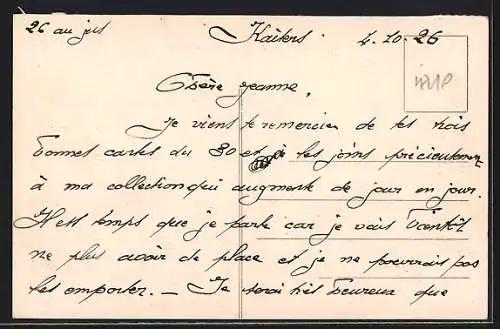 26 au jus Kaïkers. 4-10-26
4210
Chère Jeanne,
Je viens te remercier de tes trois
bonnes cartes du 30 et à les joins précieusement
à ma collection qui augmente de jour en jour.
Il est temps que je parte car je vais bientôt
ne plus avoir de place et je ne pourrais pas
les emporter. — Je serai très heureux que